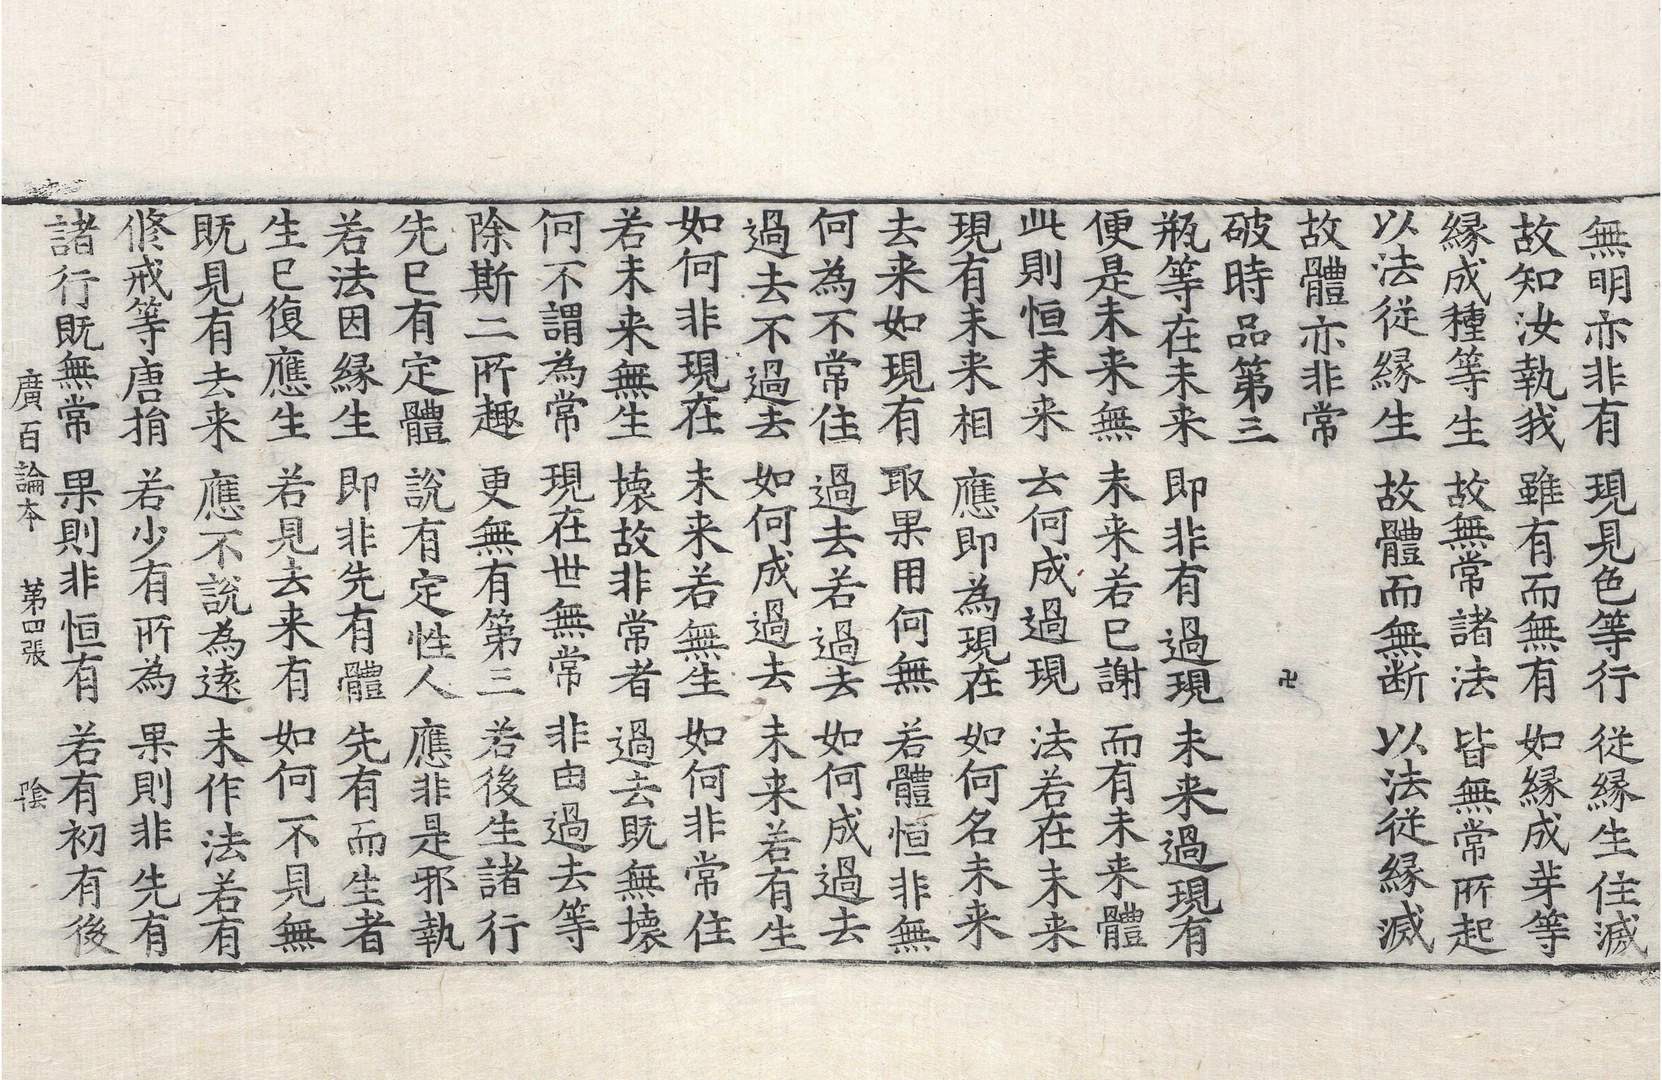 無明亦非有 現見色等行 從緣生住滅
故知汝執我 雖有而無有 如緣成芽等
緣成種等生 故無常諸法 皆無常所起
以法從緣生 故體而無断 以法從緣滅
故體亦非常
破時品第三 卍
瓶等在未来 即非有過現 未来過現有
便是未来無 未来若已謝 而有未来體
此則恒未来 云何成過現 法若在未来
現有未来相 應即為現在 如何名未来
去来如現有 取果用何無 若體恒非無
何為不常住 過去若過去 如何成過去
過去不過去 如何成過去 未来若有生
如何非現在 未来若無生 如何非常住
若未来無生 壊故非常者 過去既無壊
何不謂為常 現在世無常 非由過去等
除斯二所趣 更無有第三 若後生諸行
先已有定體 說有定性人 應非是邪執
若法因緣生 即非先有體 先有而生者
生已復應生 若見去来有 如何不見無
既見有去来 應不說為遠 未作法若有
修戒等唐捐 若少有所為 果則非先有
諸行既無常 果則非恒有 若有初有後
廣百論本 第四張 陰